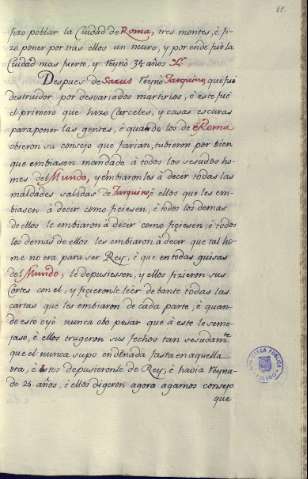 fizo poblar la Ciudad de Roma, tres montes, è fi-
zo poner por tras ellos un muro, y por ende fuè la
Ciudad mas fuerte, y reynò 34 años
Despues de reynò Tarquino que fuè
destruidor por desvariados martirios, è este fuè
el primero que hizo Carceles, y casas escuras
para penar las gentes, è quando los de Roma
obieron su consejo que farian, tubieron por bien
que embiasen mandado à todos los sesudos ho-
mes del Mundo, y embiaronles à decir todas las
maldades salidas de Tarquino, è ellos que les em-
biasen à decir como ficiesen, è todos los demas
de ellos le embiaron à decir como ficiesen, è todos
los demas de ellos les embiaron à decir que tal ho-
me no era para ser Rey, è que en todas guisas
del Mundo, le depusiessen, y ellos fizieron sus
Cortes con el, y ficieronle leèr delante todas las
cartas que les embiaron de cada parte, è quan-
do esto oyò nunca obo pesar que à este le seme-
jase, è ellos trugeron sus fechos tan sesudamte
que el nunca supo en de nada, fasta en aquella
ora, è depusieronle de Rey, è havia reyna-
do 24 años, è ellos digeron agora ayamos consejo
que